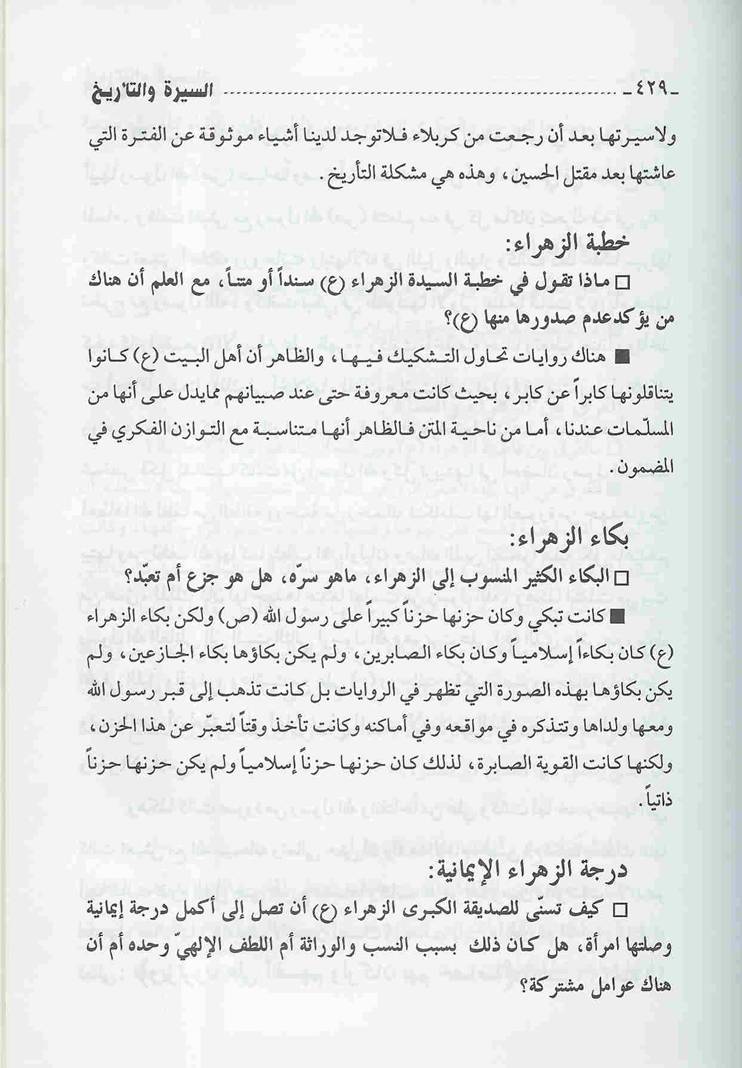 السيرة والتأريخ ................ ـ٤٢٩ـ
ولاسيرتها بعد أن رجعت من كربلاء فلاتوجد لدينا أشياء موثوقة عن الفترة التي
عاشتها بعد مقتل الحسين، وهذه هي مشكلة التأريخ.
خطبة الزهراء:
□ ماذا تقول في خطبة السيدة الزهراء (ع) سنداً أو متناً، مع العلم أن هناك
من يؤكدعدم صدورها منها (ع)؟
■ هناك روايات تحاول التشكيك فيها، والظاهر أن أهل البيت (ع) كانوا
يتناقلونها كابراً عن كابر، بحيث كانت معروفة حتى عند صبيانهم ممايدل على أنها من
المسلّمات عندنا، أما من ناحية المتن فالظاهر أنها متناسبة مع التوازن الفكري في
المضمون.
بكاء الزهراء:
□ البكاء الكثير المنسوب إلى الزهراء، ماهو سرّه، هل هو جزع أم تعبّد؟
■ كانت تبكي وكان حزنها حزناً كبيراً على رسول الله (ص) ولكن بكاء الزهراء
(ع) كان بكاءاً إسلامياً وكان بكاء الصابرين، ولم يكن بكاؤها بكاء الجازعين، ولم
يكن بكاؤها بهذه الصورة التي تظهر في الروايات بل كانت تذهب إلى قبر رسول الله
ومعها ولداها وتتذكره في مواقعه وفي أماكنه وكانت تأخذ وقتاً لتعبّر عن هذا الحزن،
ولكنها كانت القوية الصابرة، لذلك كان حزنها حزناً إسلامياً ولم يكن حزنها حزناً
ذاتياً.
درجة الزهراء الإيمانية:
□ كيف تسنّى للصديقة الكبرى الزهراء (ع) أن تصل إلى أكمل درجة إيمانية
وصلتها امرأة، هل كان ذلك بسبب النسب والوراثة أم اللطف الإلهيّ وحده أم أن
هناك عوامل مشتركة؟